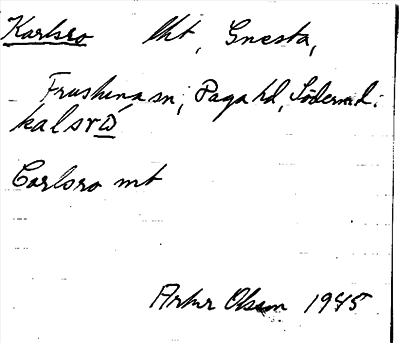 Karlsro lht, Gnesta,
Frustuna sn, Daga hd, Söderml.
kalsrω
Carlsro mt
Artur Olsson 1945